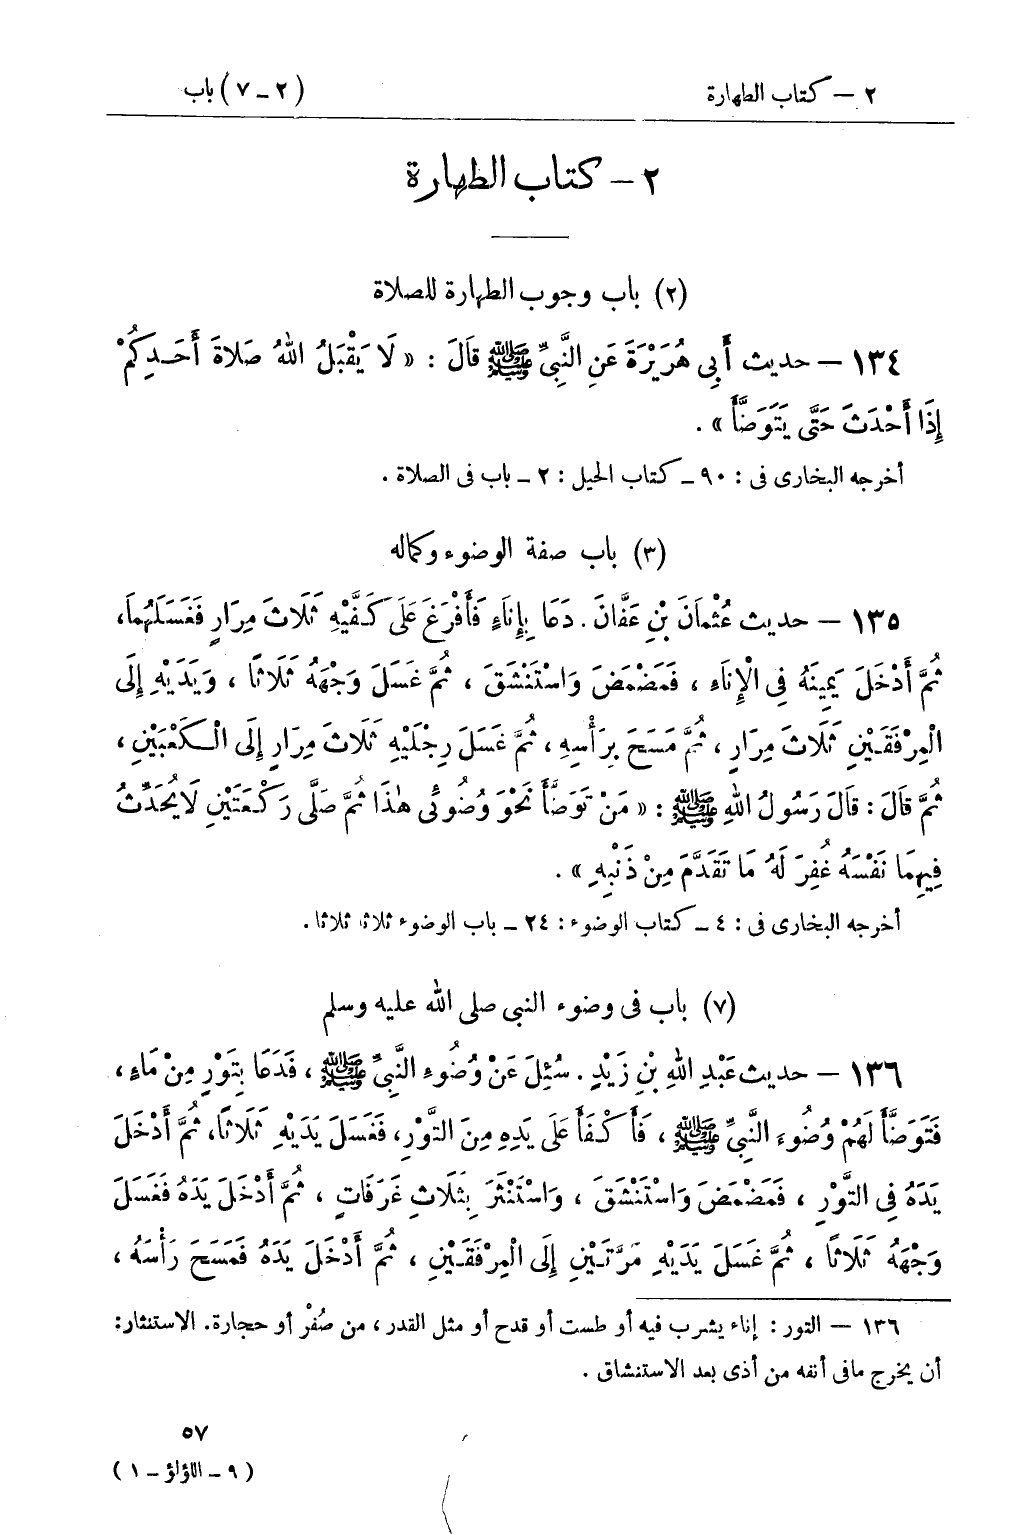 ٢ – كتاب الطهارة (٢ – ٧) باب
٢ – كتاب الطهارة
(٢) باب وجوب الطهارة للصلاة
١٣٤ – حديث أَبِى هُرَيْرَةَ عَنِ النَّبِيِّ ﷺ قَالَ : « لَا يَقْبَلُ اللهُ صَلَاةَ أَحَدِكُمْ
إِذَا أَحْدَثَ حَتَّى يَتَوَضَّأَ » .
أخرجه البخارى فى : ٩٠ – كتاب الحيل : ٢ – باب فى الصلاة .
(٣) باب صفة الوضوء وكماله
١٣٥ – حديث عُثْمَانَ بْنِ عَفَّانَ . دَعَا بِإِنَاءٍ فَأَفْرَغَ عَلَى كَفَّيْهِ ثَلَاثَ مِرَارٍ فَغَسَلَهُمَا،
ثُمَّ أَدْخَلَ يَمِينَهُ فِى الْإِنَاءِ ، فَمَضْمَضَ وَاسْتَنْشَقَ ، ثُمَّ غَسَلَ وَجْهَهُ ثَلَاثًا ، وَيَدَيْهِ إِلَى
الْمِرْفَقَيْنِ ثَلَاثَ مِرَارٍ ، ثُمَّ مَسَحَ بِرَأْسِهِ ، ثُمَّ غَسَلَ رِجْلَيْهِ ثَلَاثَ مِرَارٍ إِلَى الْكَعْبَيْنِ ،
ثُمَّ قَالَ : قَالَ رَسُولُ اللهِ ﷺ : « مَنْ تَوَضَّأَ نَحْوَ وُضُوئِى هٰذَا ثُمَّ صَلَّى رَكْعَتَيْنِ لَا يُحَدِّثُ
فِيهِمَا نَفْسَهُ غُفِرَ لَهُ مَا تَقَدَّمَ مِنْ ذَنْبِهِ » .
أخرجه البخارى فى : ٤ – كتاب الوضوء : ٢٤ – باب الوضوء ثلاثا ثلاثا .
(٧) باب فى وضوء النبى صلى الله عليه وسلم
١٣٦ – حديث عَبْدِ اللهِ بْنِ زَيْدٍ . سُئِلَ عَنْ وُضُوءِ النَّبِيِّ ﷺ ، فَدَعَا بِتَوْرٍ مِنْ مَاءٍ ،
فَتَوَضَّأَ لَهُمْ وُضُوءَ النَّبِيِّ ﷺ ، فَأَكْفَأَ عَلَى يَدِهِ مِنَ التَّوْرِ، فَغَسَلَ يَدَيْهِ ثَلَاثًا، ثُمَّ أَدْخَلَ
يَدَهُ فِى التَّوْرِ ، فَمَضْمَضَ وَاسْتَنْشَقَ ، وَاسْتَنْثَرَ بِثَلَاثِ غَرَفَاتٍ ، ثُمَّ أَدْخَلَ يَدَهُ فَغَسَلَ
وَجْهَهُ ثَلَاثًا ، ثُمَّ غَسَلَ يَدَيْهِ مَرَّتَيْنِ إِلَى الْمِرْفَقَيْنِ ، ثُمَّ أَدْخَلَ يَدَهُ فَمَسَحَ رَأْسَهُ ،
١٣٦ – التور : إناء يشرب فيه أو طست أو قدح أو مثل القدر ، من صُفْر أو حجارة. الاستنثار:
أن يخرج مافى أنفه من أذى بعد الاستنشاق .
٥٧
(٩ – اللؤلؤ – ١)